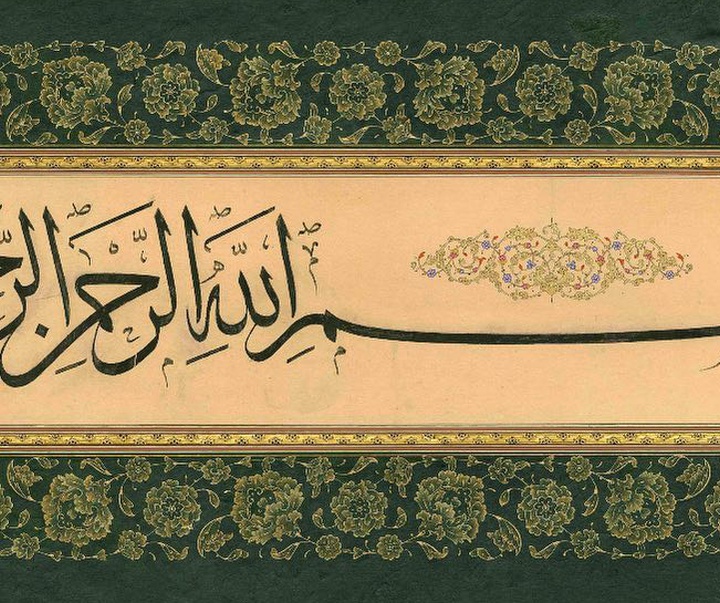 ـسمِ اللهِ الرَّحمٰنِ الرَّحـ